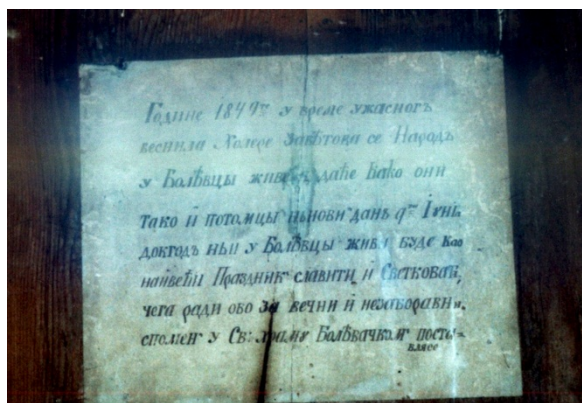 Године 1849те у време ужасногъ
веснила Холере Завѣтова се Народъ
у Болѣвцы живећи даће Како они
тако и потомцы ньиови дань 9ти Іунь
докгодъ ньи у Болѣвцы живи буде као
найвећи Праздникъ славити и Светковати,
чега ради ово за вечни и незаборавни
спомен у Св: храму Болѣвачком поста=
вляю